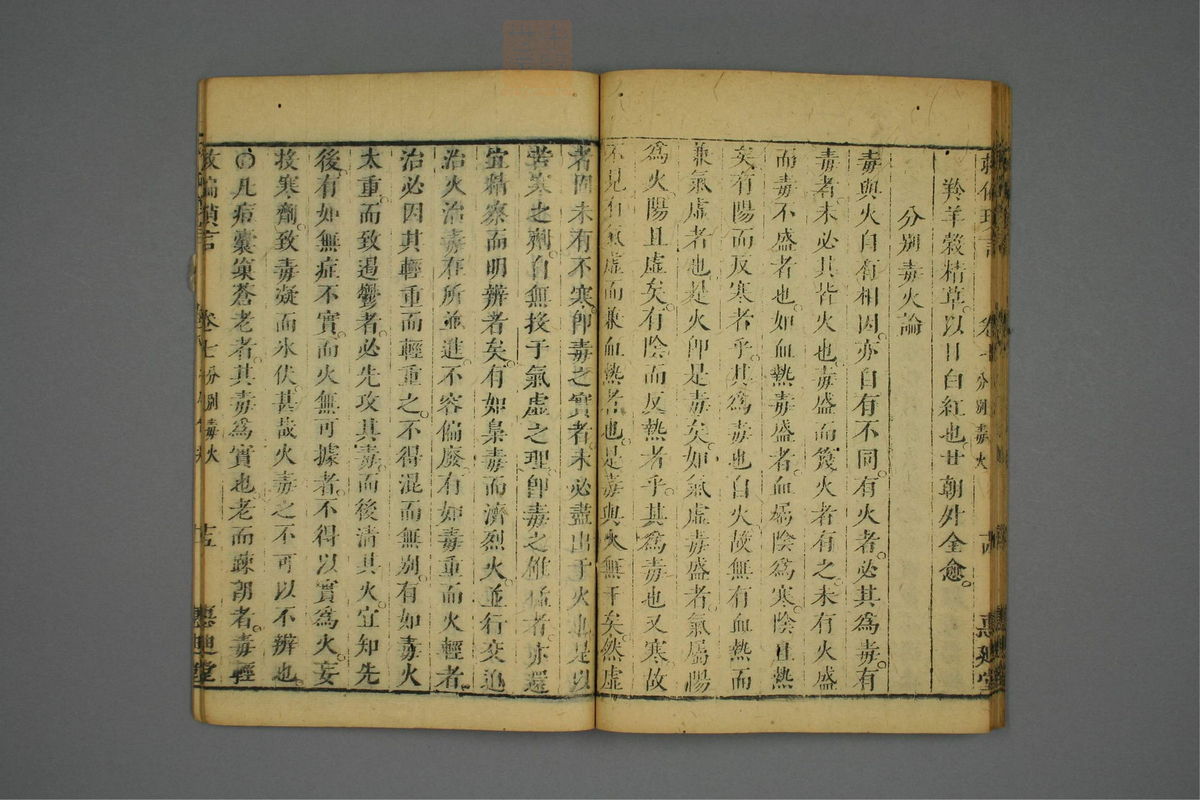 救偏瑣言 卷七 分別毒火 十四 惠迪堂
羚羊榖精草以目白紅也廿朝外全愈
分別毒火論
毒與火自有相因亦自有不同有火者必其為毒有
毒者未必其皆火也毒盛而發火者有之未有火盛
而毒不盛者也如血熱毒盛者血屬陰為寒陰且熱
矣有陽而反寒者乎其為毒也自火故無有血熱而
兼氣虛者也是火即是毒矣如氣虛毒盛者氣屬陽
為火陽且虛矣有陰而反熱者乎其為毒也又寒故
不見有氣虛而兼血熱者也是毒與火無干矣然虛
者固未有不寒即毒之實者未必盡出于火也是以
苦寒之劑自無投于氣虛之理即毒之惟猛者亦還
宜精察而明辨者矣有如梟毒而濟烈火並行交迫
治火治毒在所並進不容偏廢有如毒重而火輕者
治必因其輕重而輕重之不得混而無別有如毒火
太重而致遏鬱者必先攻其毒而後清其火宜知先
後有如無症不實而火無可據者不得以實為火妄
投寒劑致毒凝而氷伏甚哉火毒之不可以不辨也
〇凡痘囊窠蒼老者其毒為實也老而疎朗者毒輕
救偏瑣言 卷七 分別毒火 十五 惠迪堂